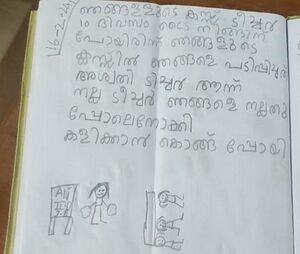 16-2-24
ഞങ്ങളുടെ ക്ലസ്സ് ടീച്ചർ
10 ദിവസം
പോയിരിന് ഞങ്ങളുടെ
ക്ലസ്സിൽ ഞങ്ങളെ പടിപ്പിച്ചത്
അശ്വതി ടീച്ചർ ആന്ന്
നല്ല ടീച്ചർ ഞങ്ങളെ നല്ലതു
പോലെനോക്കി
കളിക്കാൻ കൊങ്ങ് പോയി